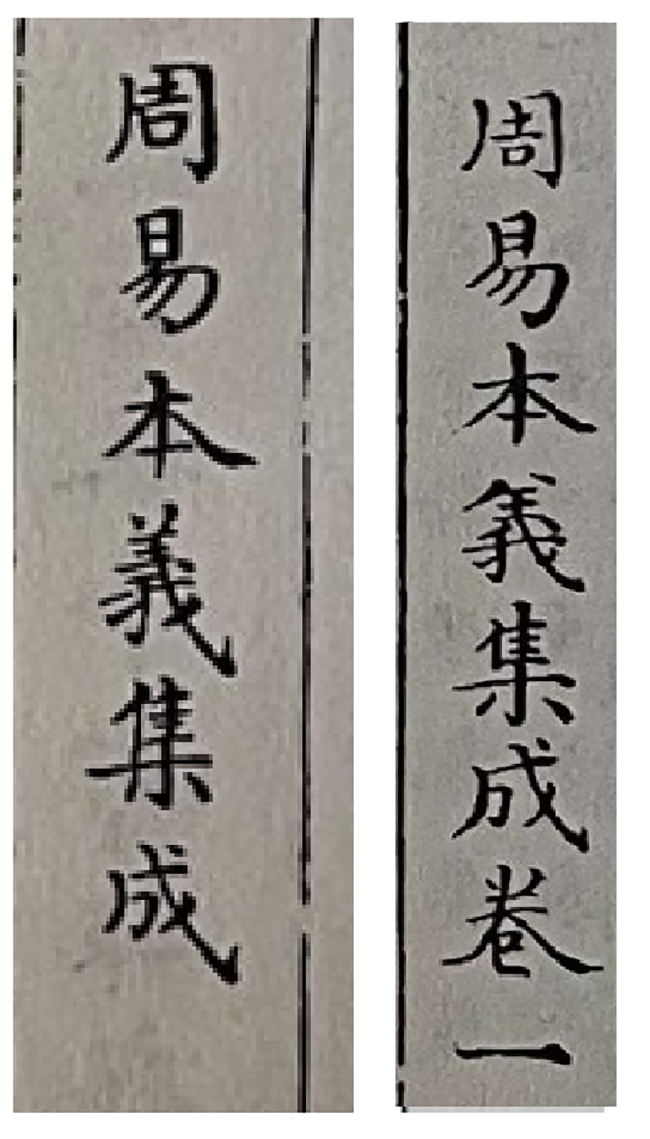 周易本義集成
周易本義集成卷一